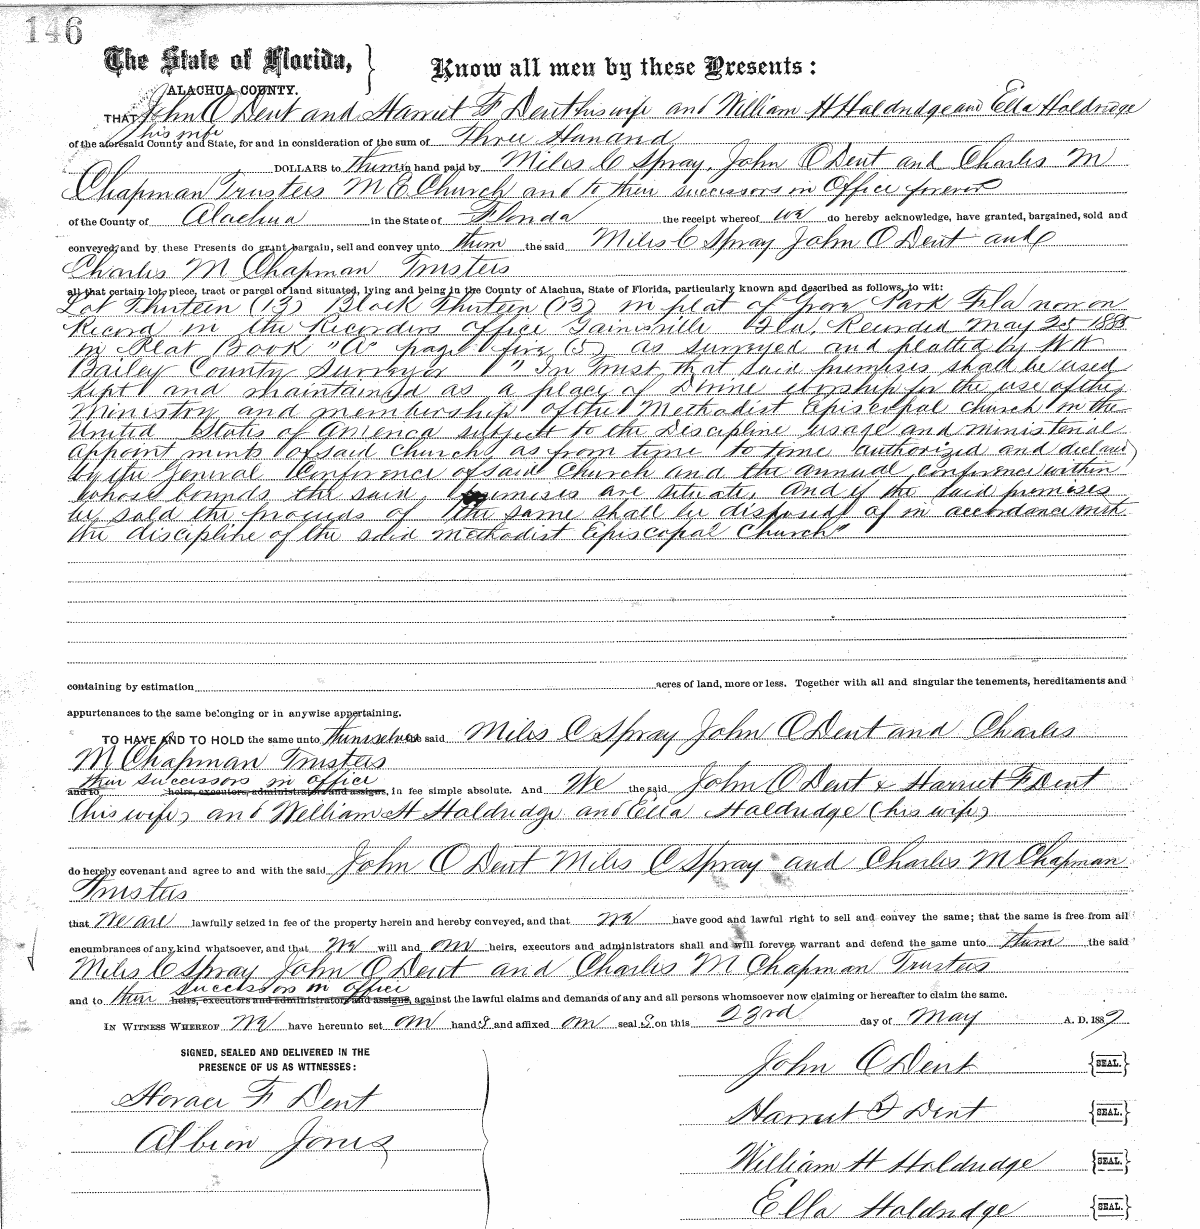 146
The State of Florida, } Know all men by these Presents:
ALACHUA COUNTY.
THAT John O Dent and Harriet F Dent his wife and William H Haldridge and Ella Haldridge
his wife
of the aforesaid County and State, for and in consideration of the sum of Three Hundred
DOLLARS to them in hand paid by Miles C Spray, John O Dent and Charles M
Chapman Trustees M E Church and to their successors in Office forever
of the County of Alachua in the State of Florida the receipt whereof we do hereby acknowledge, have granted, bargained, sold and
conveyed, and by these Presents do grant, bargain, sell and convey unto them the said Miles C Spray John O Dent and
Charles M Chapman Trustees
all that certain lot, piece, tract or parcel of land situated, lying and being in the County of Alachua, State of Florida, particularly known and described as follows, to wit:
Lot Thirteen (13) Block Thirteen (13) in plat of Grove Park Fla now on
Record in the Recorders office Gainesville Fla. Recorded May 25 1885
in Plat Book "A" page five (5) as surveyed and platted by W W
Bailey County Surveyor "In Trust that said premises shall be used
kept and maintained as a place of Divine worship for the use of the
Ministry and membership of the Methodist Episcopal church in the
United States of America subject to the Discipline usage and ministerial
appointments of said church as from time to time authorized and declared
by the General Conference of said Church and the annual conference within
whose bounds the said premises are situate. And if the said premises
be sold the proceeds of the same shall be disposed of in accordance with
the discipline of the said Methodist Episcopal Church"
containing by estimation acres of land, more or less. Together with all and singular the tenements, hereditaments and
appurtenances to the same belonging or in anywise appertaining.
TO HAVE AND TO HOLD the same unto themselves the said Miles C Spray John O Dent and Charles
M Chapman Trustees
their successors in office
and to heirs, executors, administrators and assigns, in fee simple absolute. And We the said John O Dent & Harriet F Dent
(his wife) and William H Haldridge and Ella Haldridge (his wife)
do hereby covenant and agree to and with the said John O Dent Miles C Spray and Charles M Chapman
Trustees
that We are lawfully seized in fee of the property herein and hereby conveyed, and that we have good and lawful right to sell and convey the same; that the same is free from all
encumbrances of any kind whatsoever, and that we will and our heirs, executors and administrators shall and will forever warrant and defend the same unto them the said
Miles C Spray John O Dent and Charles M Chapman Trustees
successors in office
and to their heirs, executors and administrators and assigns, against the lawful claims and demands of any and all persons whomsoever now claiming or hereafter to claim the same.
IN WITNESS WHEREOF We have hereunto set our hands and affixed our seals on this 23rd day of May A. D. 1887
SIGNED, SEALED AND DELIVERED IN THE
PRESENCE OF US AS WITNESSES:
John O Dent {SEAL.}
Horace F Dent
Harriet F Dent {SEAL.}
Albion Jones
William H Haldridge {SEAL.}
Ella Haldridge {SEAL.}